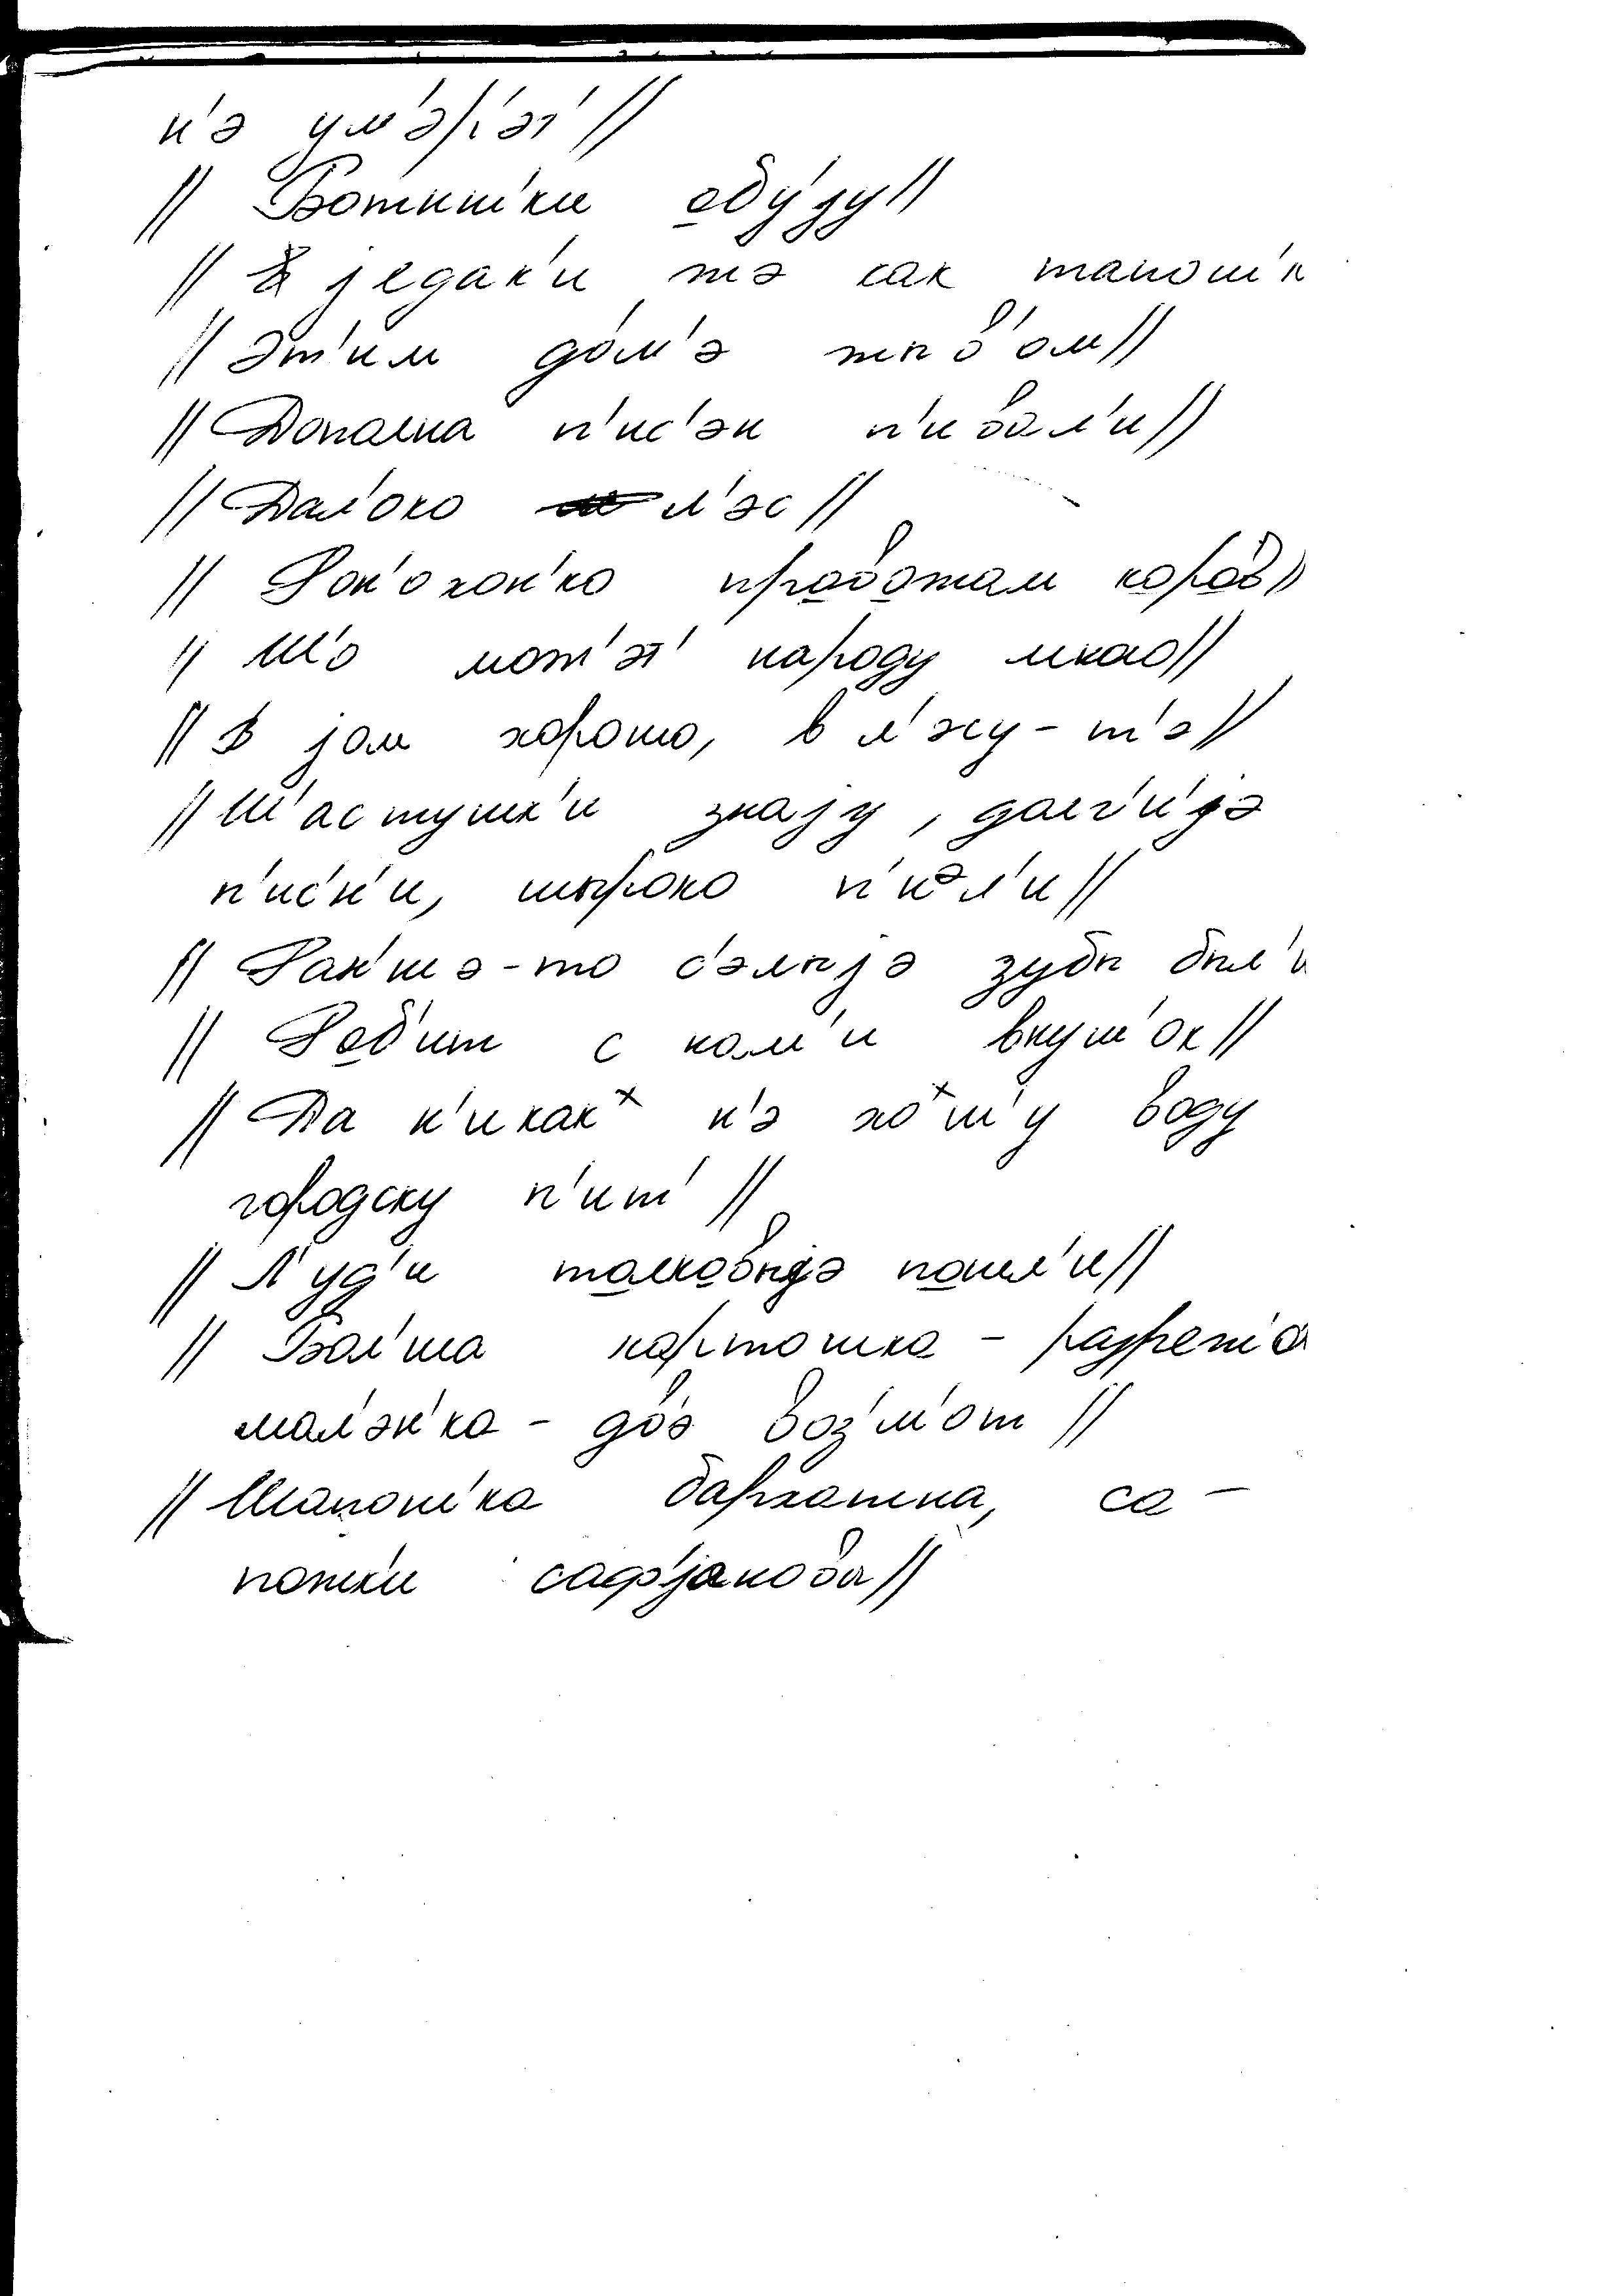 н'э ум'эр'эт' //
// Ботин'ки обуjу //
// jедак'и жэ как тапош'к
// Эт'им дом'э жыв'ом //
// Допална п'ис'эн п'ивал'и //
// Дал'око л'эс //
// Рон'охон'ко проводжам коров //
// Ш'о мож'эт народу мнао //
// В jам хорошо, в л'эсу-т'э //
// Ш'астушк'и знаjу, долг'иjэ
п'ис'н'и, шыроко п'иэл'и //
// Ран'шэ-то с'элыjэ зубы был'и
// Роб'ит с нам'и внуш'ок //
// Да н'икак н'э хош'у воду
городску п'ит' //
// Л'уд'и толковыjэ пошл'и //
// Бол'ша картошка - разреж'о
мал'эн'ка - двэ воз'м'от //
// Шапош'ка бархатна, са-
пожк'и саф'jановы //